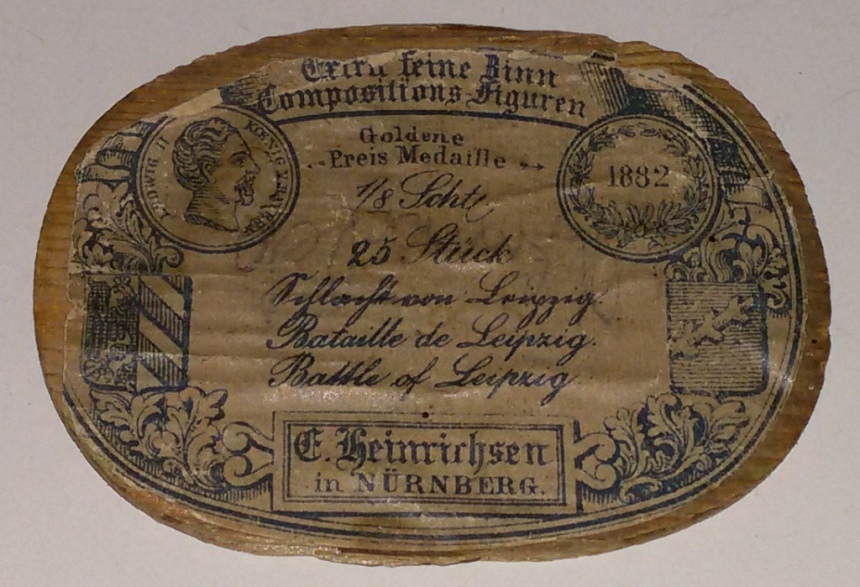 Extra feine Zinn
Compositions-Figuren
Goldene
Preis Medaille
LUDWIG II KOENIG V. BAYERN
1882
1/8 Scht
25 Stück
Schlacht von Leipzig.
Bataille de Leipzig.
Battle of Leipzig
E. Heinrichsen
in NÜRNBERG.